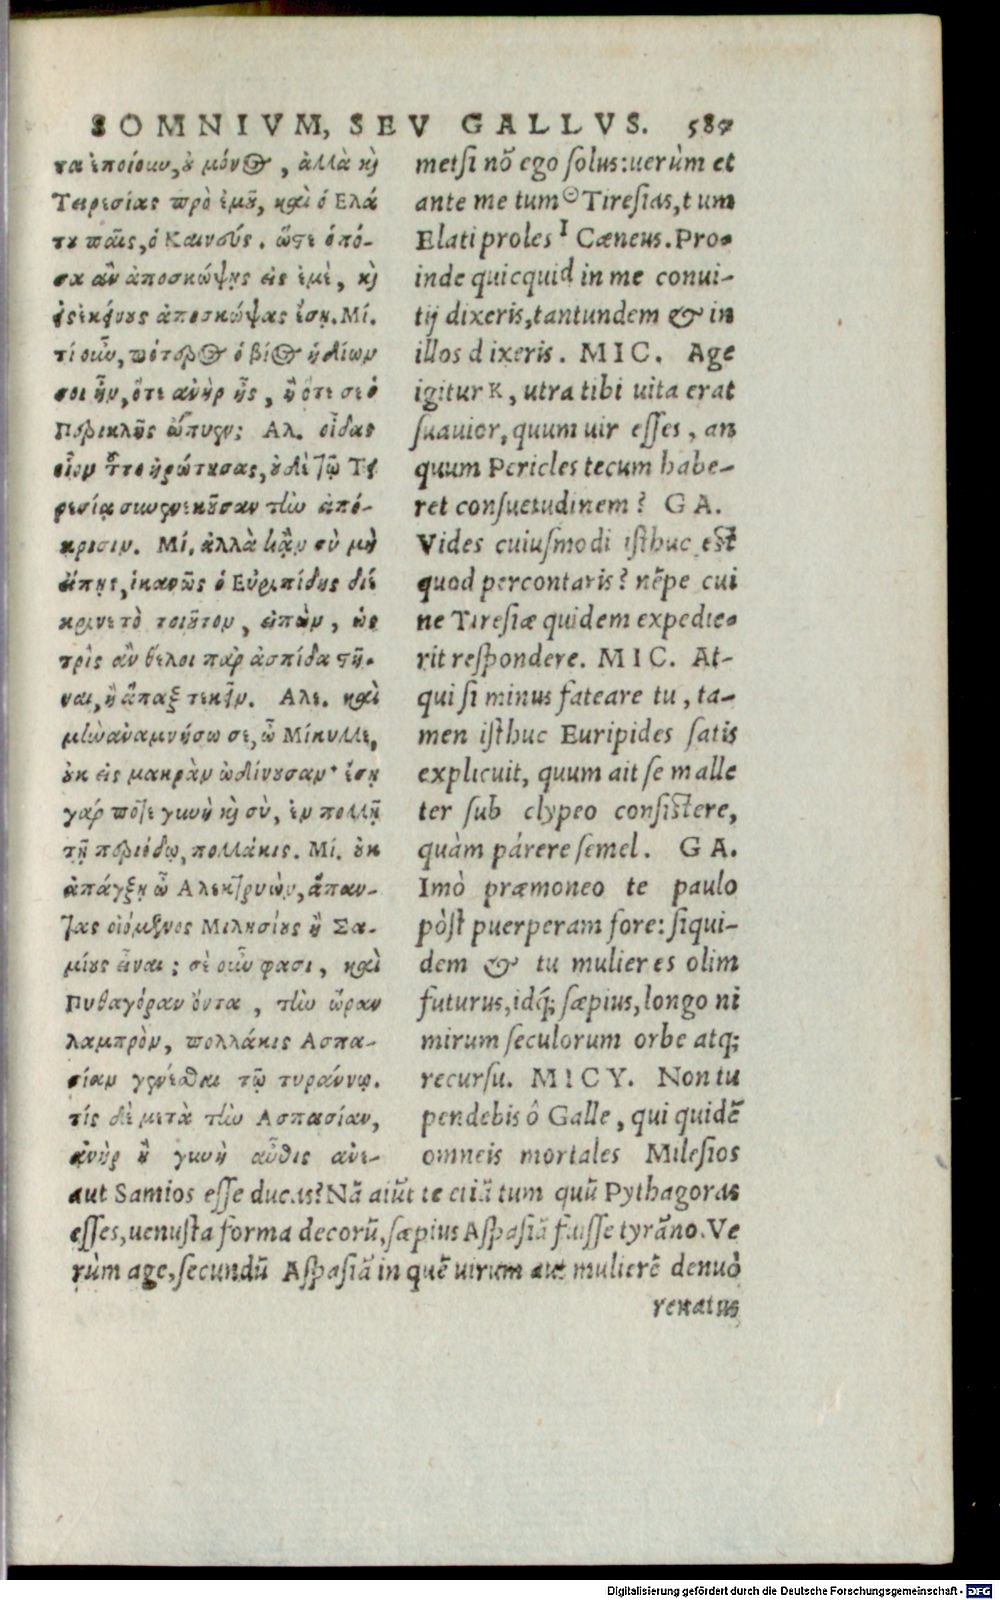 SOMNIVM, SEV GALLVS. 587
τα ἐποίουν, οὐ μόνος, ἀλλὰ καὶ
Τειρεσίας πρὸ ἐμοῦ, καὶ ὁ Ελά
του παῖς, ὁ Καινούς. ὥστε ὁπό-
σα ἂν ἀποσκώψῃς εἰς ἐμὲ, καὶ
εἰς ἐκείνους ἀποσκώψας ἔσῃ. Μί.
τί οὖν, πότερος ὁ βίος ἡδίων
σοι ἦν, ὅτε ἀνὴρ ἦς, ἢ ὅτε σε ὁ
Περικλῆς ὤπυεν; Αλ. οἶδας
οἷον τοῦτο ἠρώτησας, οὐδὲ τῷ Τει
ρεσίᾳ συνενεγκοῦσαν τὴν ἀπό-
κρισιν. Μί. ἀλλὰ κἂν σὺ μὴ
εἴπῃς, ἱκανῶς ὁ Εὐριπίδης διέ
κρινε τὸ τοιοῦτον, εἰπὼν, ὡς
τρὶς ἂν θέλοι παρ ἀσπίδα στῆ-
ναι, ἢ ἅπαξ τεκεῖν. Αλε. καὶ
μὴν ἀναμνήσω σε, ὦ Μίκυλλε,
οὐκ εἰς μακρὰν ὠδίνουσαν· ἔσῃ
γάρ ποτε γυνὴ καὶ σὺ, ἐν πολλῇ
τῇ περιόδῳ, πολλάκις. Μί. οὐκ
ἀπάγξῃ ὦ Αλεκτρυὼν, ἅπαν-
τας οἰόμενος Μιλησίους ἢ Σα-
μίους εἶναι; σὲ οὖν φασι, καὶ
Πυθαγόραν ὄντα, τὴν ὥραν
λαμπρὸν, πολλάκις Ασπα-
σίαν γενέσθαι τῷ τυράννῳ.
τίς δὲ μετὰ τὴν Ασπασίαν,
ἀνὴρ ἢ γυνὴ αὖθις ἀνε-
metsi nõ ego solus: uerùm et
ante me tum Tiresias, tum
Elati proles I Cæneus. Pro-
inde quicquid in me conui-
tij dixeris, tantundem & in
illos dixeris. MIC. Age
igitur K, utra tibi uita erat
suauior, quum uir esses, an
quum Pericles tecum habe-
ret consuetudinem? GA.
Vides cuiusmodi isthuc est
quod percontaris? nẽpe cui
ne Tiresiæ quidem expedie-
rit respondere. MIC. At-
qui si minus fateare tu, ta-
men isthuc Euripides satis
explicuit, quum ait se malle
ter sub clypeo consistere,
quàm párere semel. GA.
Imò præmoneo te paulo
pòst puerperam fore: siqui-
dem & tu mulier es olim
futurus, idq́; sæpius, longo ni
mirum seculorum orbe atq;
recursu. MICY. Non tu
pendebis ô Galle, qui quidẽ
omneis mortales Milesios
aut Samios esse ducas? Nã aiũt te etiã tum quũ Pythagoras
esses, uenusta forma decorũ, sæpius Aspasiã fuisse tyrãno. Ve
rùm age, secundũ Aspasiã in quẽ uirum aut mulierẽ denuò
renatus
Digitalisierung gefördert durch die Deutsche Forschungsgemeinschaft - DFG